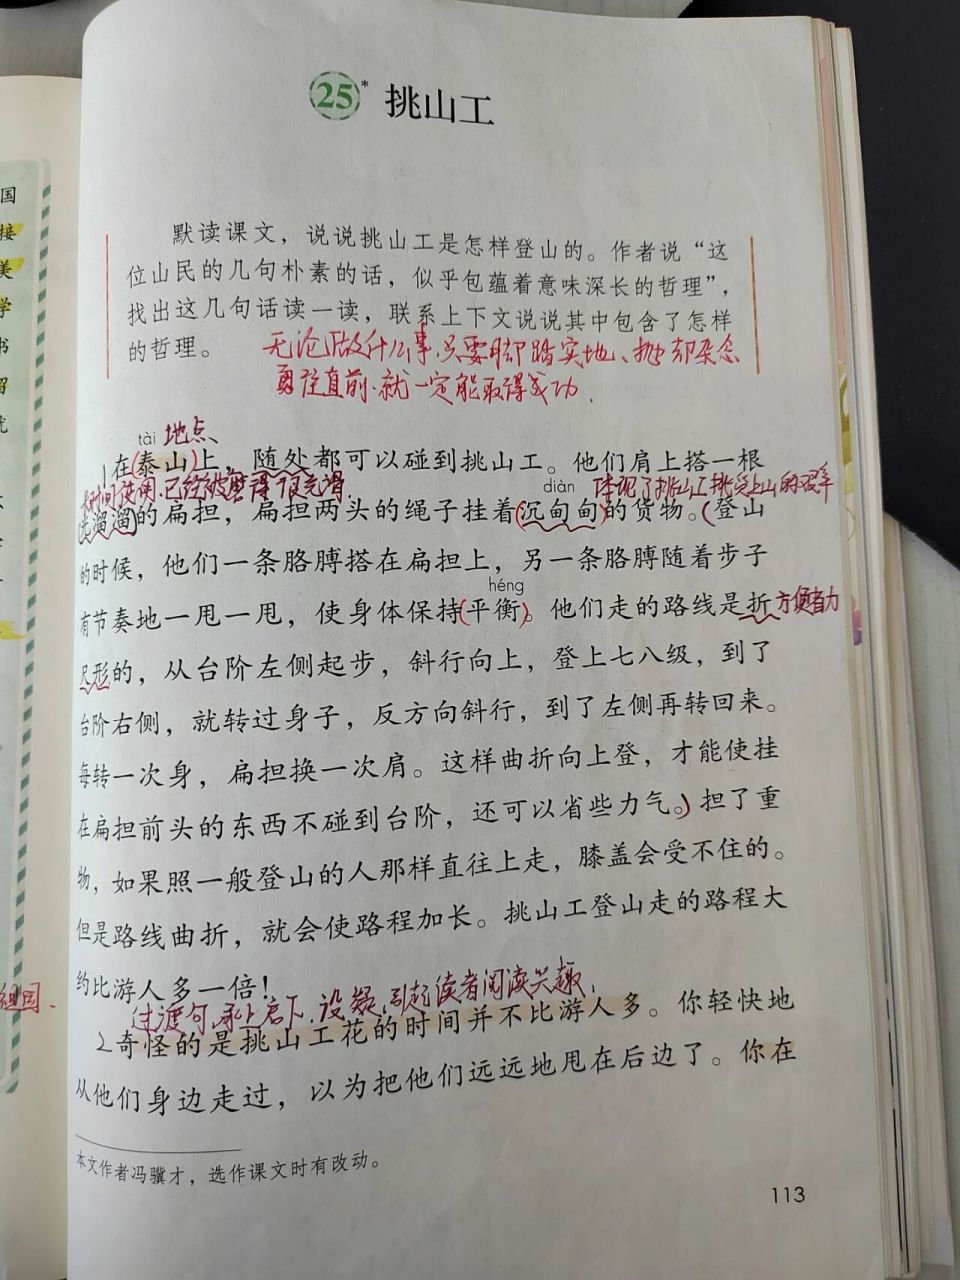 25* 挑山工
默读课文，说说挑山工是怎样登山的。作者说“这
位山民的几句朴素的话，似乎包蕴着意味深长的哲理”，
找出这几句话读一读，联系上下文说说其中包含了怎样
的哲理。
无论做什么事,只要脚踏实地、抛却杂念
勇往直前.就一定能取得成功.
tài 地点、
1在(泰山)上，随处都可以碰到挑山工。他们肩上搭一根
长时间使用,已经被磨得很光滑
diàn 体现了挑山工挑货上山的艰辛
(光溜溜)的扁担，扁担两头的绳子挂着(沉甸甸)的货物。(登山
的时候，他们一条胳膊搭在扁担上，另一条胳膊随着步子
héng
有节奏地一甩一甩，使身体保持(平衡)。他们走的路线是折
方便省力
尺形的，从台阶左侧起步，斜行向上，登上七八级，到了
台阶右侧，就转过身子，反方向斜行，到了左侧再转回来。
每转一次身，扁担换一次肩。这样曲折向上登，才能使挂
在扁担前头的东西不碰到台阶，还可以省些力气。)担了重
物，如果照一般登山的人那样直往上走，膝盖会受不住的。
但是路线曲折，就会使路程加长。挑山工登山走的路程大
约比游人多一倍！
过渡句,承上启下.设疑,引起读者阅读兴趣,
2奇怪的是挑山工花的时间并不比游人多。你轻快地
从他们身边走过，以为把他们远远地甩在后边了。你在
本文作者冯骥才，选作课文时有改动。
113
国
接
美
学
书
留
祖国.